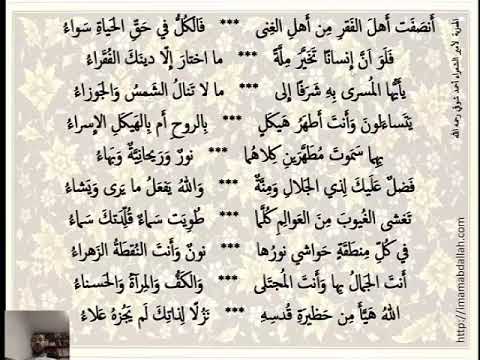 أَنصَفتَ أَهلَ الفَقرِ مِن أَهلِ الغِنى *** فَالكُلُّ في حَقِّ الحَياةِ سَواءُ
فَلَوَ اَنَّ إِنسانًا تَخَيَّرَ مِلَّةً *** ما اختارَ إِلّا دينَكَ الفُقَراءُ
يأَيُّها المُسرى بِهِ شَرَفًا إِلى *** ما لا تَنالُ الشَمسُ وَالجَوزاءُ
يَتَساءَلونَ وَأَنتَ أَطهَرُ هَيكَلٍ *** بِالروحِ أَم بِالهَيكَلِ الإِسراءُ
بِهِما سَمَوتَ مُطَهَّرَينِ كِلاهُما *** نورٌ وَرَيحانِيَّةٌ وَبَهاءُ
فَضلٌ عَلَيكَ لِذي الجَلالِ وَمِنَّةٌ *** وَاللهُ يَفعَلُ ما يَرى وَيَشاءُ
تَغشى الغُيوبَ مِنَ العَوالِمِ كُلَّما *** طُوِيَت سَماءٌ قُلِّدَتكَ سَماءُ
في كُلِّ مِنطَقَةٍ حَواشي نورُها *** نونٌ وَأَنتَ النُقطَةُ الزَهراءُ
أَنتَ الجَمالُ بِها وَأَنتَ المُجتَلى *** وَالكَفُّ وَالمِرآةُ وَالحَسناءُ
اللهُ هَيَّأَ مِن حَظيرَةِ قُدسِهِ *** نَزُلًا لِذاتِكَ لَم يَجُزهُ عَلاءُ
الهمزية لأمير الشعراء أحمد شوقي رحمه الله
http://imamabdallah.com